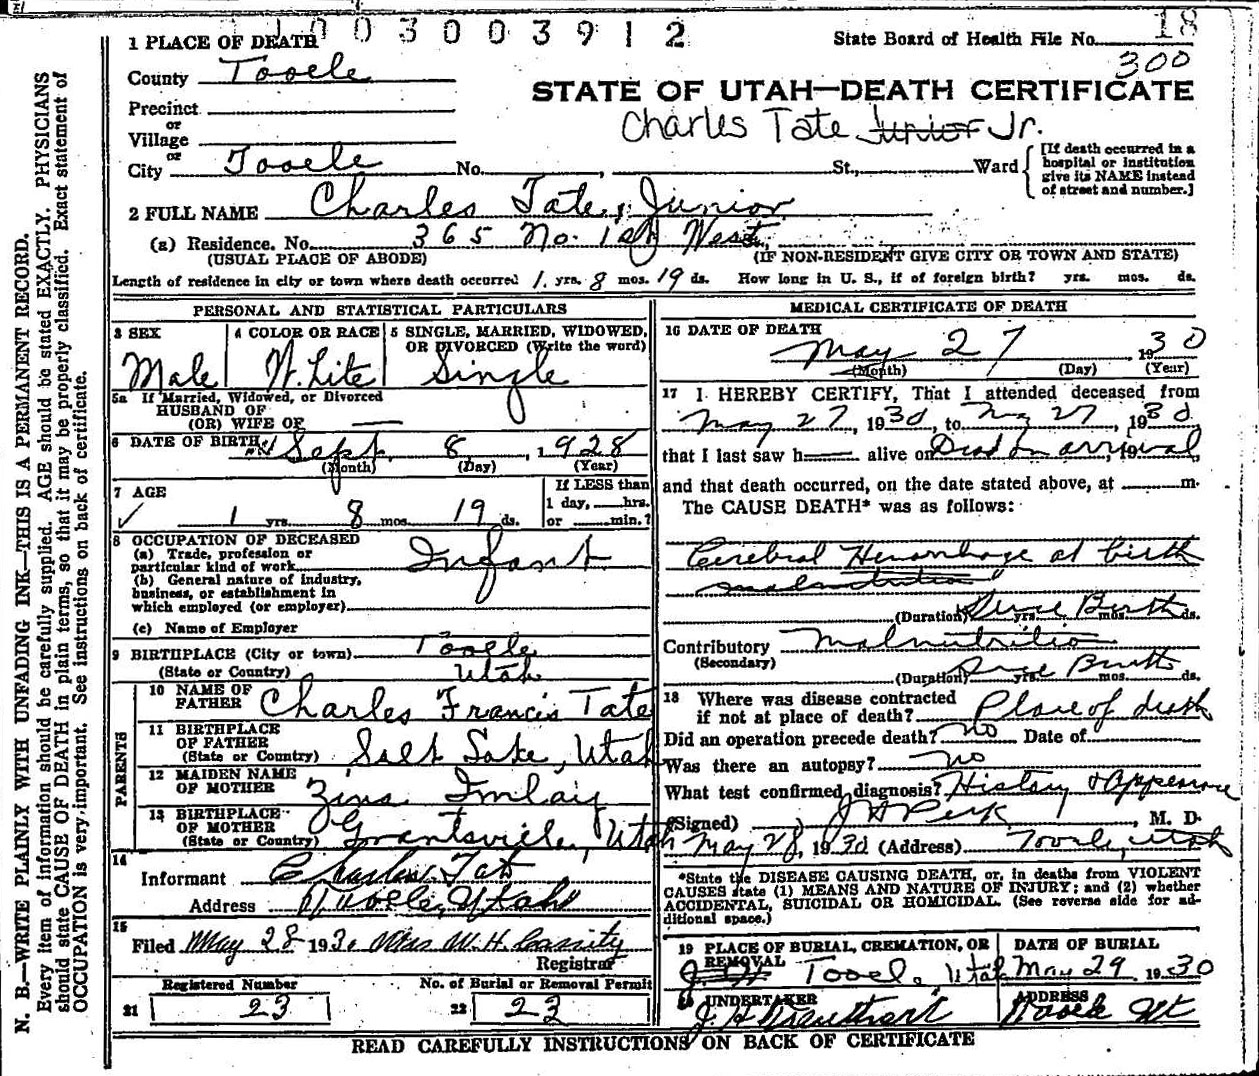 1 0 0 3 0 0 3 9 1 2
18
1 PLACE OF DEATH
State Board of Health File No.
300
County Tooele
STATE OF UTAH—DEATH CERTIFICATE
Precinct
or
Charles Tate Junior Jr.
Village
or
City Tooele No. , St., Ward
[If death occurred in a
hospital or institution
give its NAME instead
of street and number.]
2 FULL NAME Charles Tate, Junior
(a) Residence. No. 365 No. 1st West,
(USUAL PLACE OF ABODE) (IF NON-RESIDENT GIVE CITY OR TOWN AND STATE)
Length of residence in city or town where death occurred 1 yrs. 8 mos. 19 ds. How long in U. S., if of foreign birth? yrs. mos. ds.
PERSONAL AND STATISTICAL PARTICULARS
3 SEX
Male
4 COLOR OR RACE
White
5 SINGLE, MARRIED, WIDOWED,
OR DIVORCED (Write the word)
Single
5a If Married, Widowed, or Divorced
HUSBAND OF
(OR) WIFE OF —
6 DATE OF BIRTH Sept. 8, 1928
(Month) (Day) (Year)
7 AGE
1 yrs. 8 mos. 19 ds.
If LESS than
1 day, hrs.
or min.?
8 OCCUPATION OF DECEASED
(a) Trade, profession or
particular kind of work Infant
(b) General nature of industry,
business, or establishment in
which employed (or employer)
(c) Name of Employer
9 BIRTHPLACE (City or town) Tooele
(State or Country) Utah
PARENTS
10 NAME OF
FATHER Charles Francis Tate
11 BIRTHPLACE
OF FATHER
(State or Country) Salt Lake, Utah
12 MAIDEN NAME
OF MOTHER Zina Imlay
13 BIRTHPLACE
OF MOTHER
(State or Country) Grantsville, Utah
14
Informant Charles Tate
Address Tooele, Utah
15
Filed May 28 1930 Mrs W. H. Cassity
Registrar
Registered Number
21 23
No. of Burial or Removal Permit
22 23
MEDICAL CERTIFICATE OF DEATH
16 DATE OF DEATH
May 27 1930
(Month) (Day) (Year)
17 I HEREBY CERTIFY, That I attended deceased from
May 27, 1930, to May 27, 1930
that I last saw h alive on Dead on arrival, 19
and that death occurred, on the date stated above, at m.
The CAUSE DEATH* was as follows:
Cerebral Hemorrhage at birth
malnutrition
(Duration) Since Birth yrs. mos. ds.
Contributory Malnutrition
(Secondary)
(Duration) Since Birth yrs. mos. ds.
18 Where was disease contracted
if not at place of death? Place of death
Did an operation precede death? no Date of
Was there an autopsy? no
What test confirmed diagnosis? History & Appearance
(Signed) J H Peck, M. D.
May 28, 1930 (Address) Tooele, Utah
*State the DISEASE CAUSING DEATH, or, in deaths from VIOLENT
CAUSES state (1) MEANS AND NATURE OF INJURY; and (2) whether
ACCIDENTAL, SUICIDAL OR HOMICIDAL. (See reverse side for ad-
ditional space.)
19 PLACE OF BURIAL, CREMATION, OR
REMOVAL
Tooel. Utah
DATE OF BURIAL
May 29 1930
20 UNDERTAKER
ADDRESS
READ CAREFULLY INSTRUCTIONS ON BACK OF CERTIFICATE
N. B.—WRITE PLAINLY WITH UNFADING INK—THIS IS A PERMANENT RECORD.
Every item of information should be carefully supplied. AGE should be stated EXACTLY. PHYSICIANS
should state CAUSE OF DEATH in plain terms, so that it may be properly classified. Exact statement of
OCCUPATION is very important. See instructions on back of certificate.